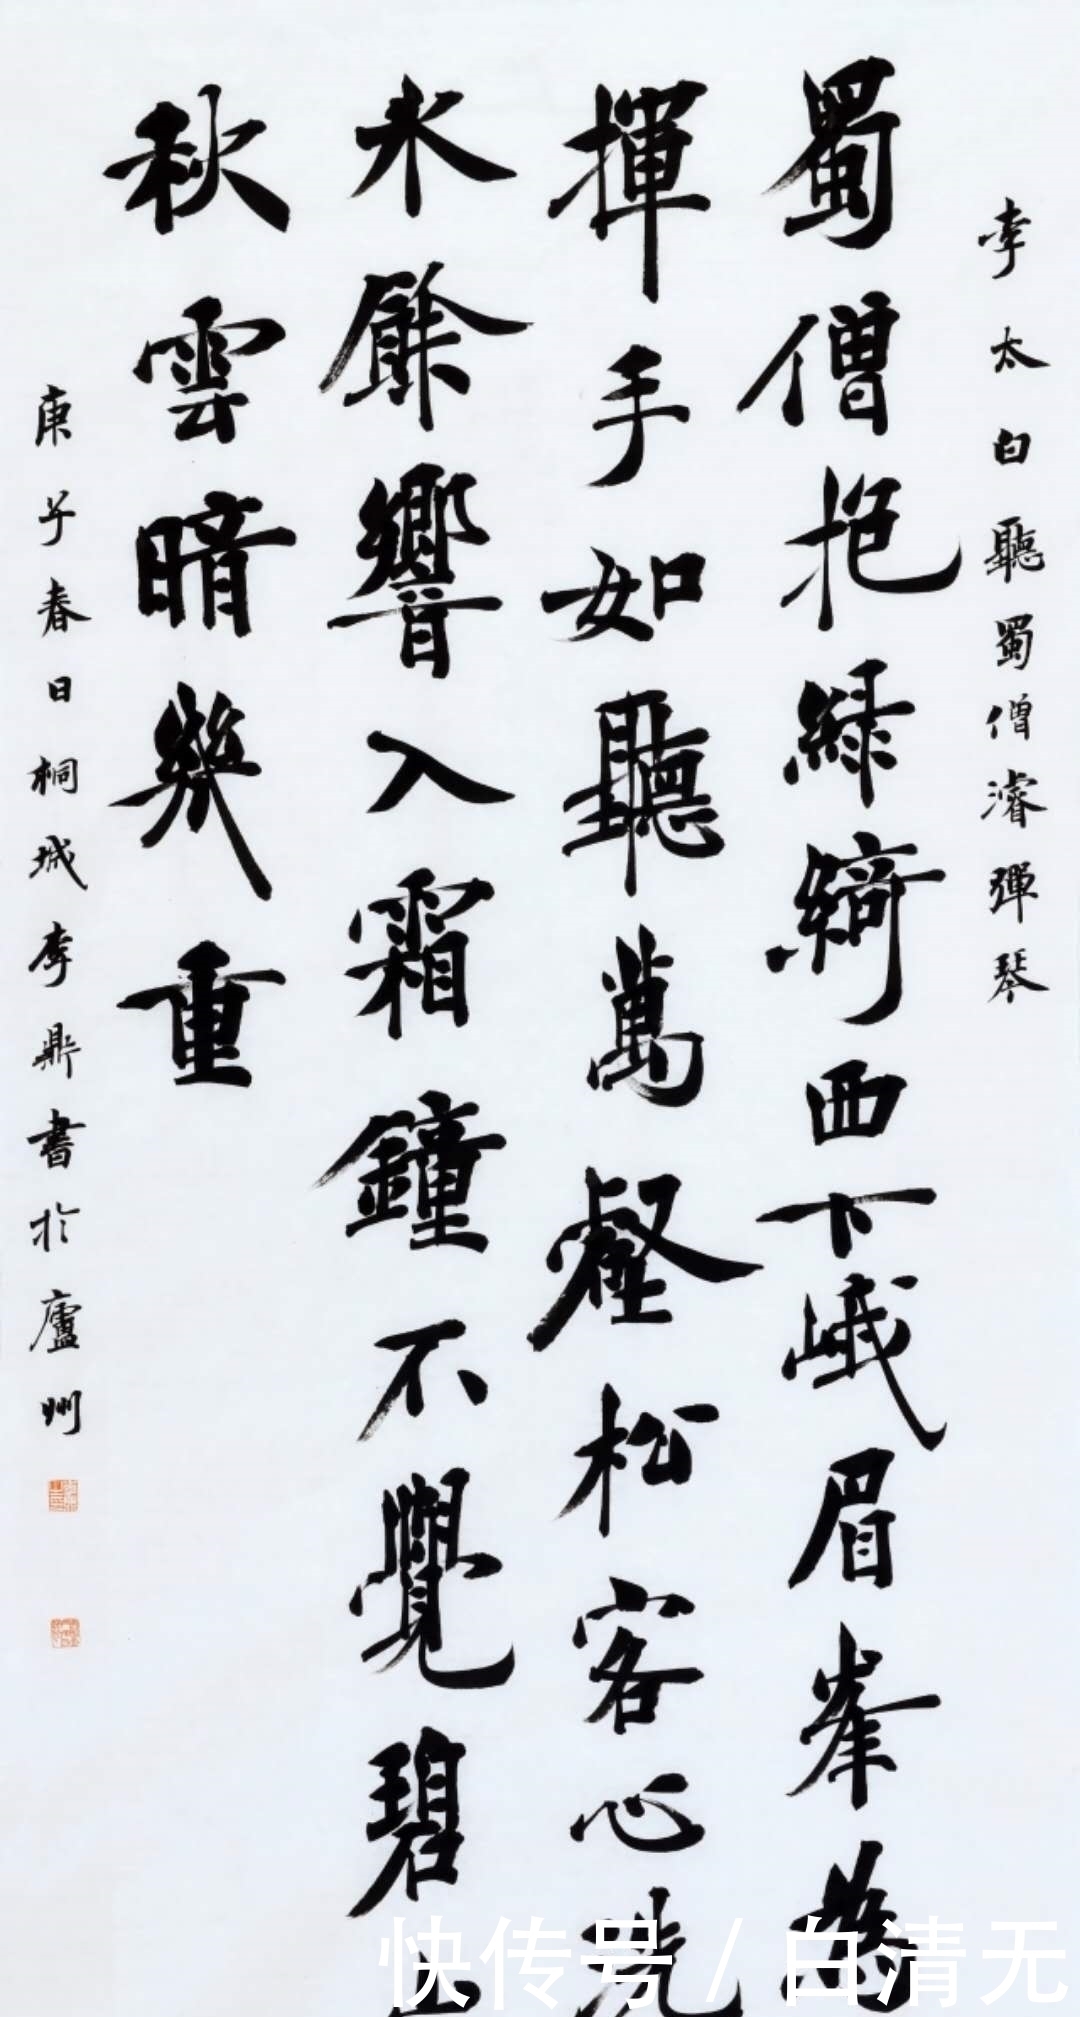 李太白聽蜀僧濬彈琴
蜀僧抱綠綺西下峨眉峯為
揮手如聽萬壑松客心洗
水餘響入霜鐘不覺碧山
秋雲暗幾重
庚子春日桐城李鼎書於廬州
快传号 / 白清无